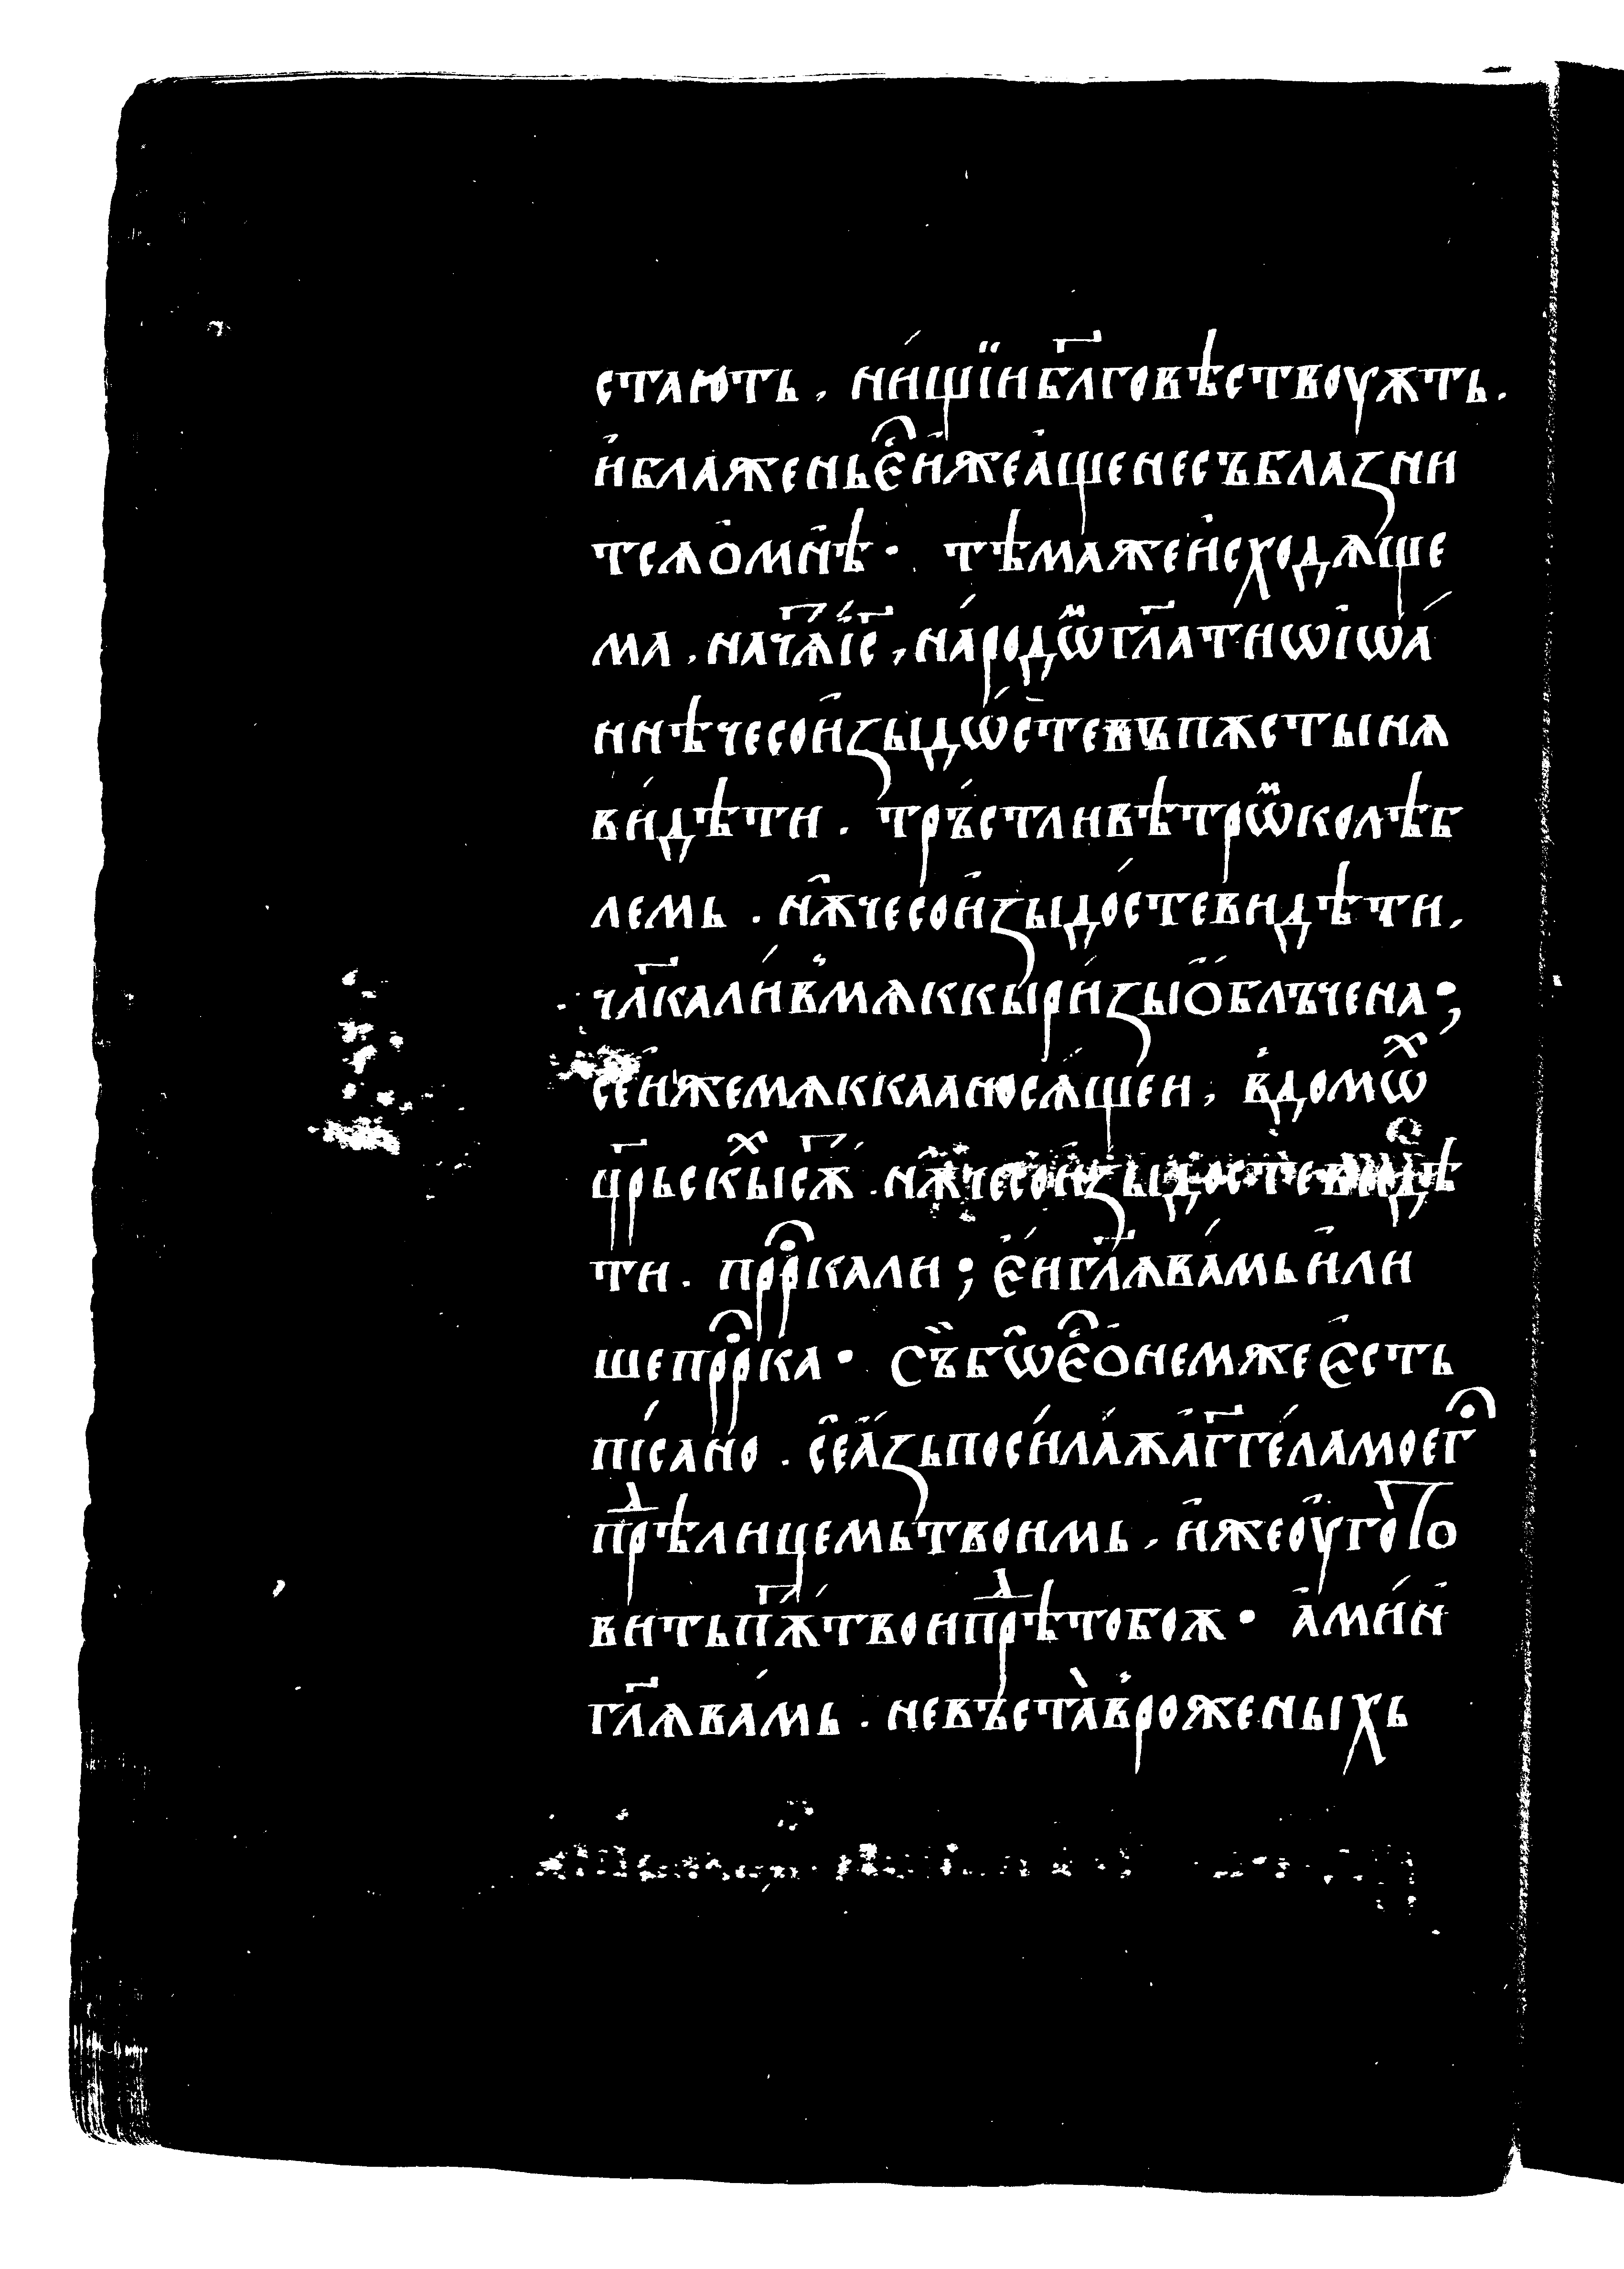 стають, ни́щїи бл҃говѣствоуѫть.
и҆блаженье҆̑и҆жеа҆щенесъблазни
тсѧо҆мн҆ѣ· тѣмажеи҆сходѧще
ма, нач҃ѧі҆с҃, наро́дѡⷨгл҃атиѡі҆ѡа́
ннѣчесои҆зыдѡ́стевъпѫстынѧ
ви́дѣти. тръ́стливѣтрѡⷨколѣб
лемь. нѫ̑чесои҆зыдо́стевидѣти,
чл҃кали́в҆мѧккыри́зыо҆блъчена;
сеи҆жемѧккааносѧ́щеи, в҆домѡⷯ
цр҃ьскыⷯсѫ҃. нѫ̑чесои҆зыдостевидѣ
ти. прⷪ҇ркали; е҆́игл҃ѧва́мьи҆ли
шепрⷪ҇рка· Съ̏бѡ̑е҆̑о҆немжее҆сть
пі́сано. се̑а҆́зьпоси́ла́ѫа҆г҃ге́ламоегⷪ҇
прⷣѣлицемьтвоимь, и҆жеоу҆гото
витьпѫ҃́твоипрⷣѣтобоѫ· а҆ми́н҆
гл҃ѧва́мь. невъ́ста̀в҆роженыхь